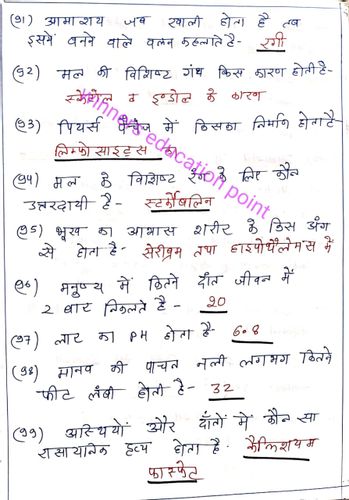 (91) आमाशय जब खाली होता है तब
इसमें बनने वाले वलन कहलाते है- रगी
(92) मल की विशिष्ट गंध किस कारण होती है-
स्केटोल व इन्डोल के कारण
(93) पियर्स पैचेज में किसका निर्माण होता है-
लिम्फोसाइट्स का
(94) मल के विशिष्ट रंग के लिए कौन
उत्तरदायी है- स्टर्कोबिलिन
(95) भूख का आभास शरीर के किस अंग
से होता है- सेरीब्रम तथा हाइपोथैलेमस में
(96) मनुष्य में कितने दाँत जीवन में
2 बार निकलते है- 20
(97) लार का PH होता है- 6.8
(98) मानव की पाचन नली लगभग कितने
फीट लंबी होती है- 32
(99) अस्थियों और दाँतों में कौन सा
रासायनिक द्रव्य होता है- कैल्शियम
फास्फेट
khinner's education point